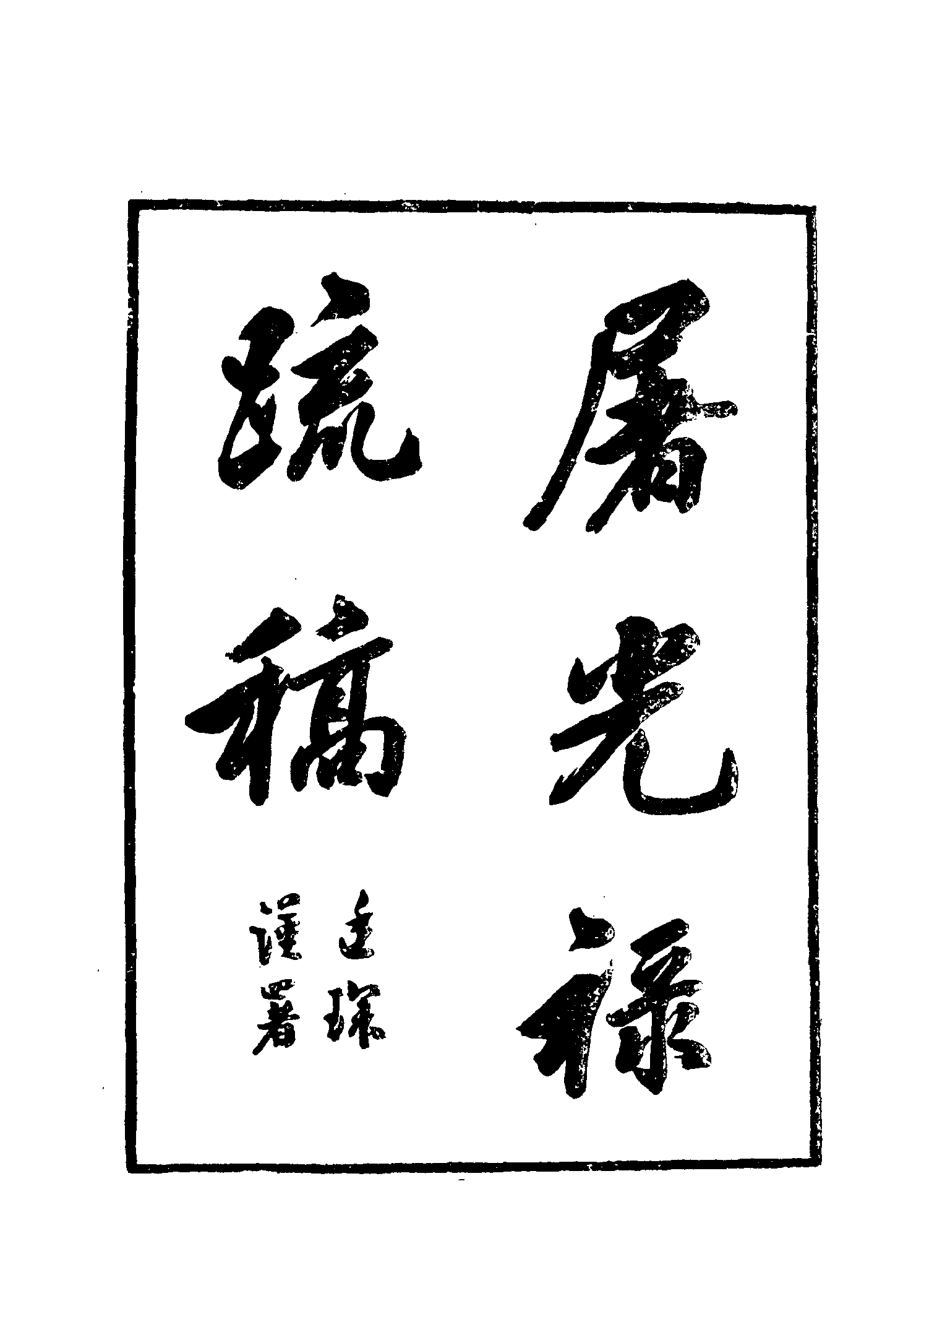 屠光祿
疏稿
廷琛
謹署